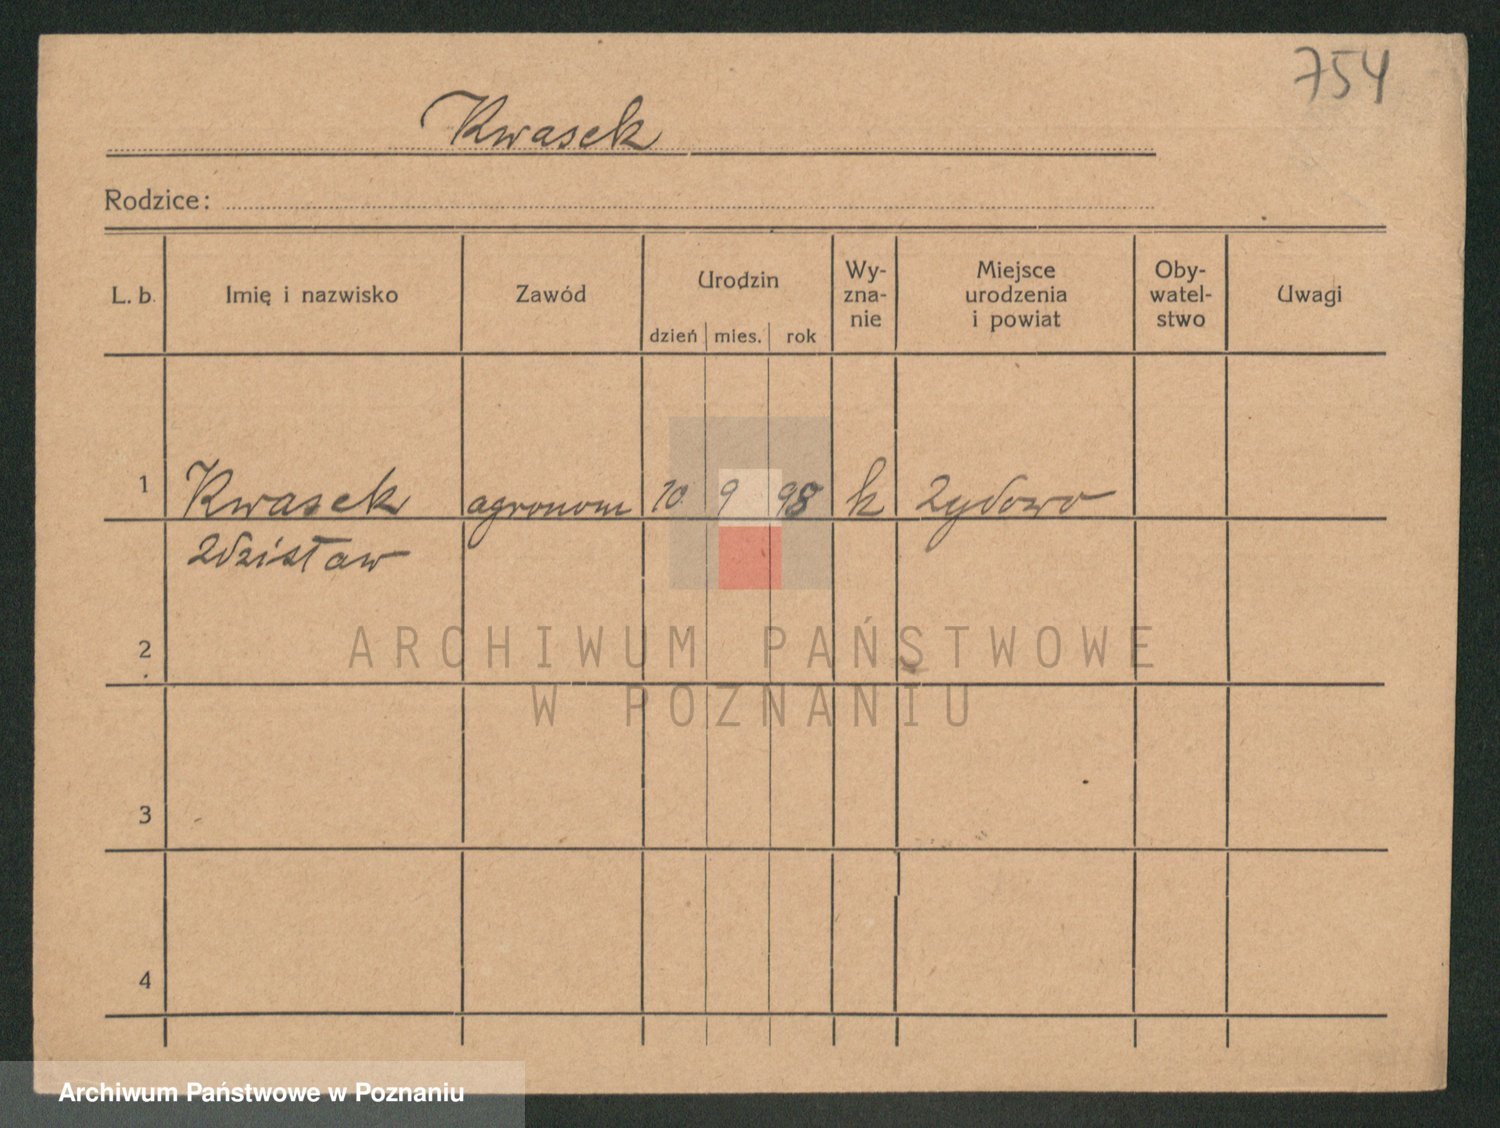 754
Kwasek
Rodzice:
L. b. Imię i nazwisko Zawód Urodzin dzień mies. rok Wy-zna-nie Miejsce urodzenia i powiat Oby-watel-stwo Uwagi
1 Kwasek agronom 10 9 98 k Zydowo
Zdzisław
2
ARCHIWUM PAŃSTWOWE
W POZNANIU
3
4
Archiwum Państwowe w Poznaniu